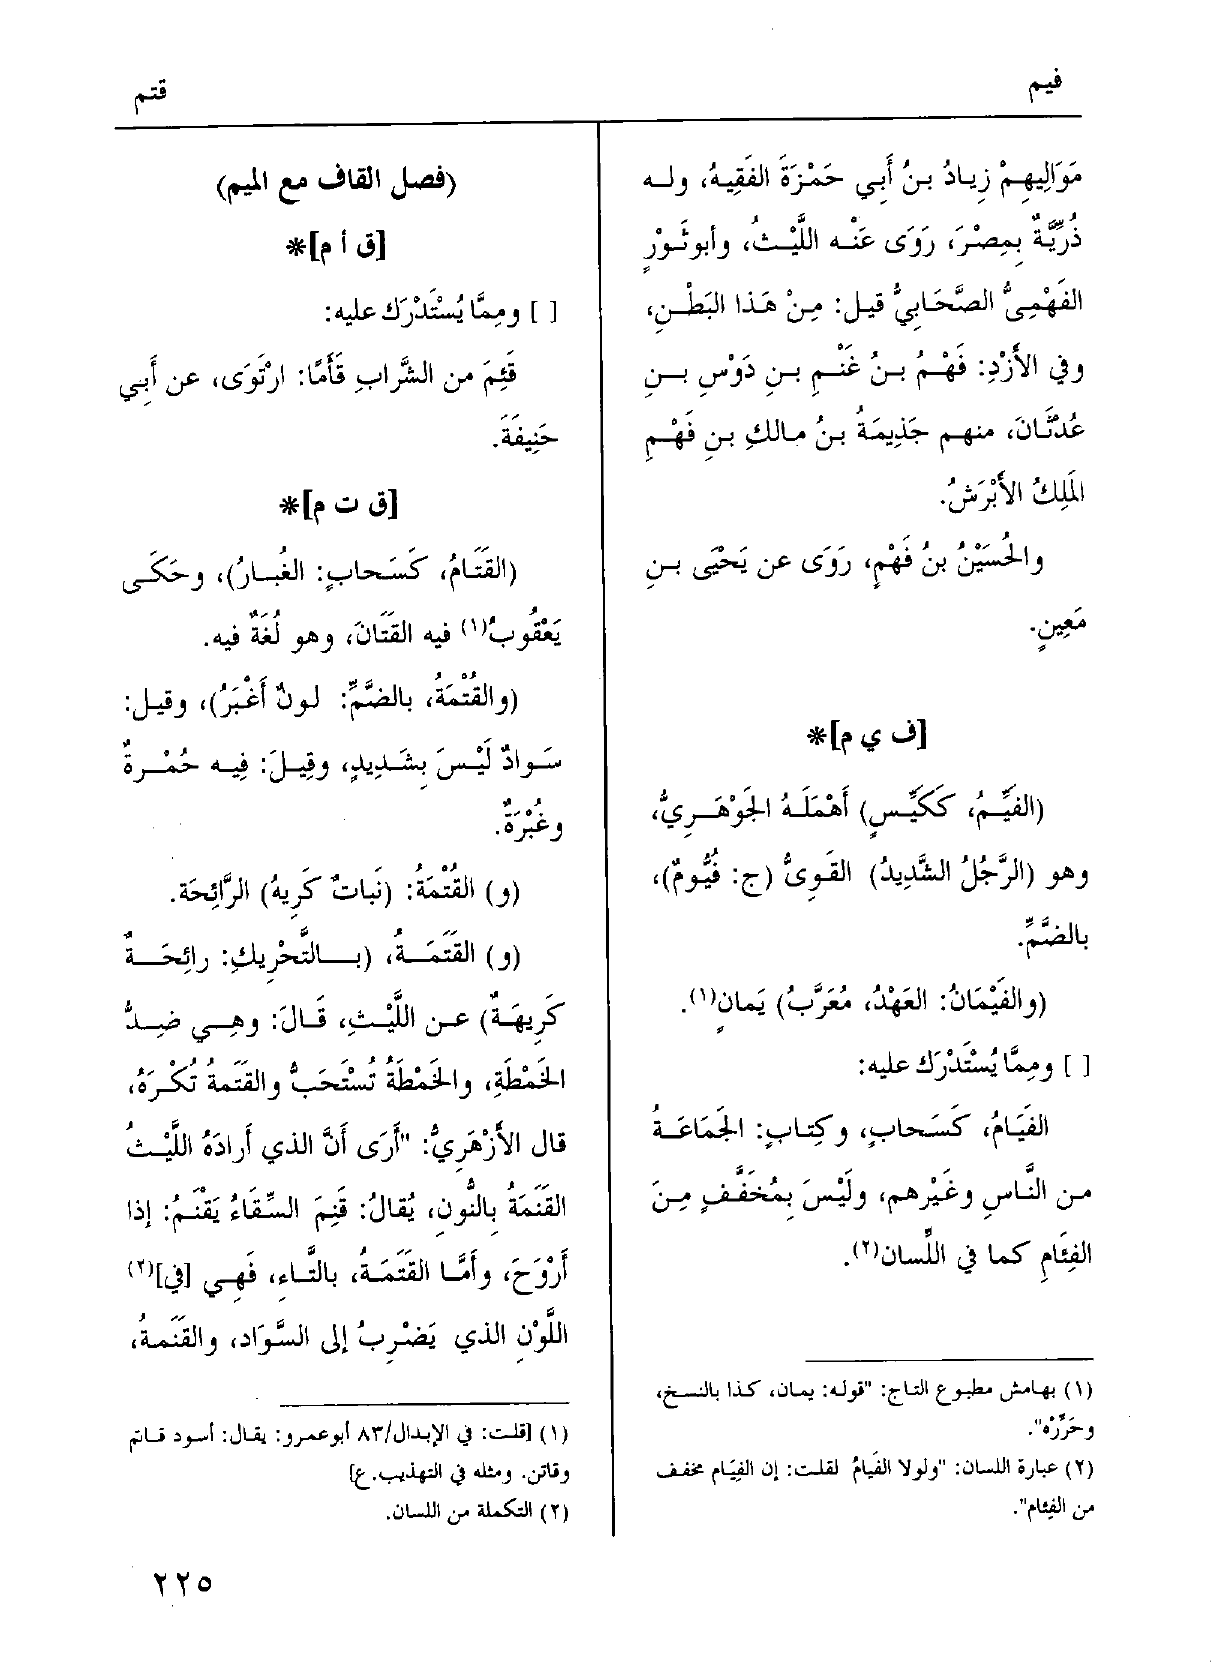 فيم
قتم
مَوَالِيهِمْ زِيادُ بنُ أَبي حَمْزَةَ الفَقِيهُ، وله
ذُرِّيَّةٌ بِمِصْرَ، رَوَى عَنْه اللَّيْثُ، وأبوثَوْرٍ
الفَهْمِيُّ الصَّحَابِيُّ قيل: مِنْ هَذا البَطْنِ،
وفي الأَزْدِ: فَهْمُ بنُ غَنْمِ بنِ دَوْسِ بنِ
عُدْثَانَ، منهم جَذِيمَةُ بنُ مالكِ بنِ فَهْمٍ
المَلِكُ الأَبْرَشُ.
والحُسَيْنُ بنُ فَهْمٍ، رَوَى عن يَحْيَى بنِ
مَعِينٍ.
[ف ي م]*
(الفَيِّمُ، كَكَيِّسٍ) أَهْمَلَهُ الجَوْهَرِيُّ،
وهو (الرَّجُلُ الشَّدِيدُ) القَوِيُّ (ج: فُيُومٌ)،
بالضَّمِّ.
(والفَيْمَانُ: العَهْدُ، مُعَرَّبُ) يَمانٍ(١).
[ ] ومِمَّا يُسْتَدْرَك عليه:
الفَيَامُ، كَسَحابٍ، وكِتابٍ: الجَمَاعَةُ
من النَّاسِ وغَيْرِهم، ولَيْسَ بِمُخَفَّفٍ مِنَ
الفِئَامِ كما في اللِّسان(٢).
(١) بهامش مطبوع التاج: "قوله: يمان، كذا بالنسخ،
وحَرِّرْه".
(٢) عبارة اللسان: "ولولا الفَيامُ لقلت: إن الفِيَام مخفف
من الفِئام".
(فصل القاف مع الميم)
[ق أ م]*
[ ] ومِمَّا يُسْتَدْرَك عليه:
قَئِمَ من الشَّرابِ قَأَمًا: ارْتَوَى، عن أَبي
حَنِيفَةَ.
[ق ت م]*
(القَتَامُ، كَسَحابٍ: الغُبارُ)، وحَكَى
يَعْقُوبُ(١) فيه القَتَانَ، وهو لُغَةٌ فيه.
(والقُتْمَةُ، بالضَّمِّ: لونٌ أَغْبَرُ)، وقيل:
سَوادٌ لَيْسَ بِشَدِيدٍ، وقِيلَ: فِيه حُمْرةٌ
وغُبْرَةٌ.
(و) القُتْمَةُ: (نَباتٌ كَرِيهُ) الرَّائِحَة.
(و) القَتَمَةُ، (بالتَّحْرِيكِ: رائِحَةٌ
كَرِيهَةٌ) عن اللَّيْثِ، قَالَ: وهِي ضِدُّ
الخَمْطَةِ، والخَمْطَةُ تُسْتَحَبُّ والقَتَمَةُ تُكْرَهُ،
قال الأَزْهَرِيُّ: "أَرَى أَنَّ الذي أَرادَهُ اللَّيْثُ
القَنَمَةُ بِالنُّونِ، يُقالُ: قَنِمَ السِّقاءُ يَقْنَمُ: إذا
أَرْوَحَ، وأَمَّا القَتَمَةُ، بالتَّاءِ، فَهِي [في](٢)
اللَّوْنِ الذي يَضْرِبُ إلى السَّوَادِ، والقَنَمةُ،
(١) [قلت: في الإبدال/٨٣ أبوعمرو: يقال: أسود قاتم
وقاتن. ومثله في التهذيب.ع]
(٢) التكملة من اللسان.
٢٢٥